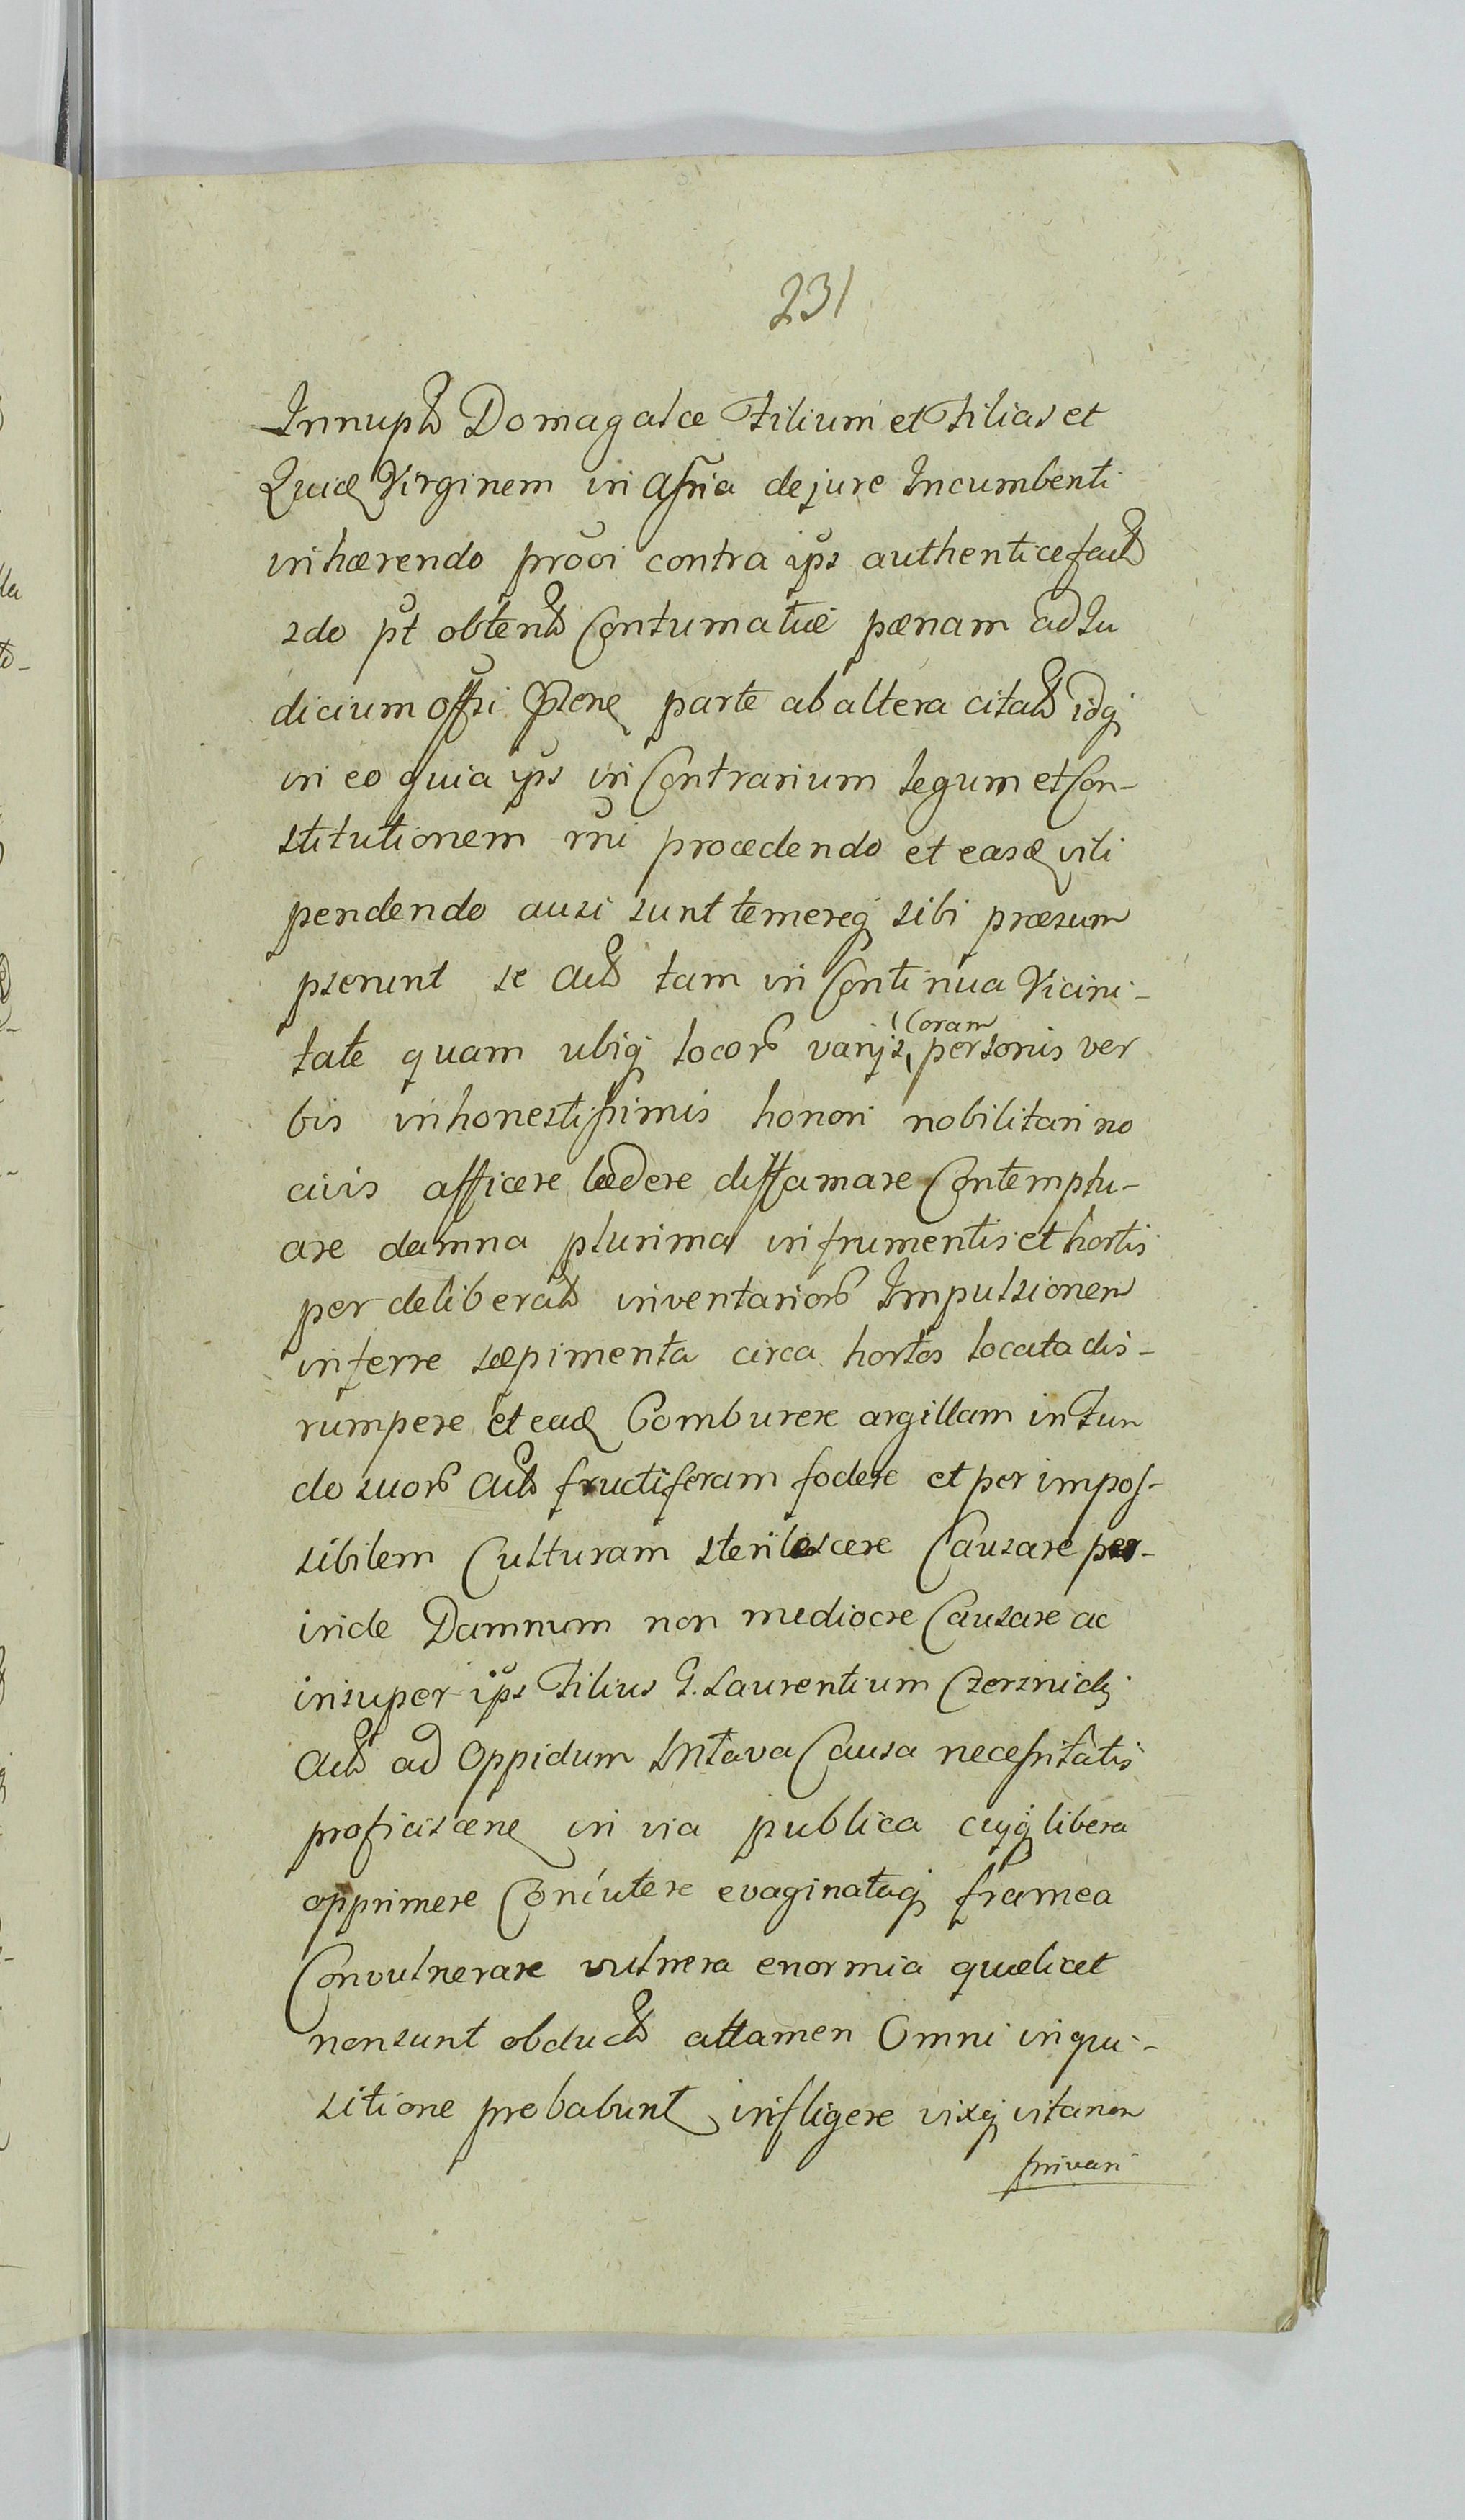 231
Innupt Domagalce Filium et Filias et
Quid Virginem in Assña de jure Incumbenti
inhærendo proõi contra ips authentice fact
sdo pt obtent Contumatiæ pænam ad Iu
dicium Offsi parte ab altera citat idq
in eo quia ips in Contrarium Legum et Con-
stitutionem rñi procedendo et easd vili
pendendo ausi sunt temereq sibi præsum
pserunt se Act tam in Continua Vicini-
tate quam ubiq locor varijs Coram personis ver
bis inhonestissimis honori nobilitari no
civis afficere lædere diffamare Contemptu-
are damna plurima in frumentis et hortis
per deliberat inventarior Impulsionem
inferre sæpimenta circa hortos locata dis-
rumpere et ead Comburere argillam in Fun
do suor Act fructiferam fodere et per impos-
sibilem Culturam sterilescere Causare per-
inde Damnum non mediocre Causare ac
insuper ips Filius G. Laurentium Czersnicki
Act ad Oppidum Mstava Causa necessitatis
proficiscene in via publica cuiq libera
opprimere Concutere evaginataq framea
Convulnerare vulnera enormia quælicet
non sunt obduct attamen Omni inqui-
sitione probabunt infligere vixq vita non
privari